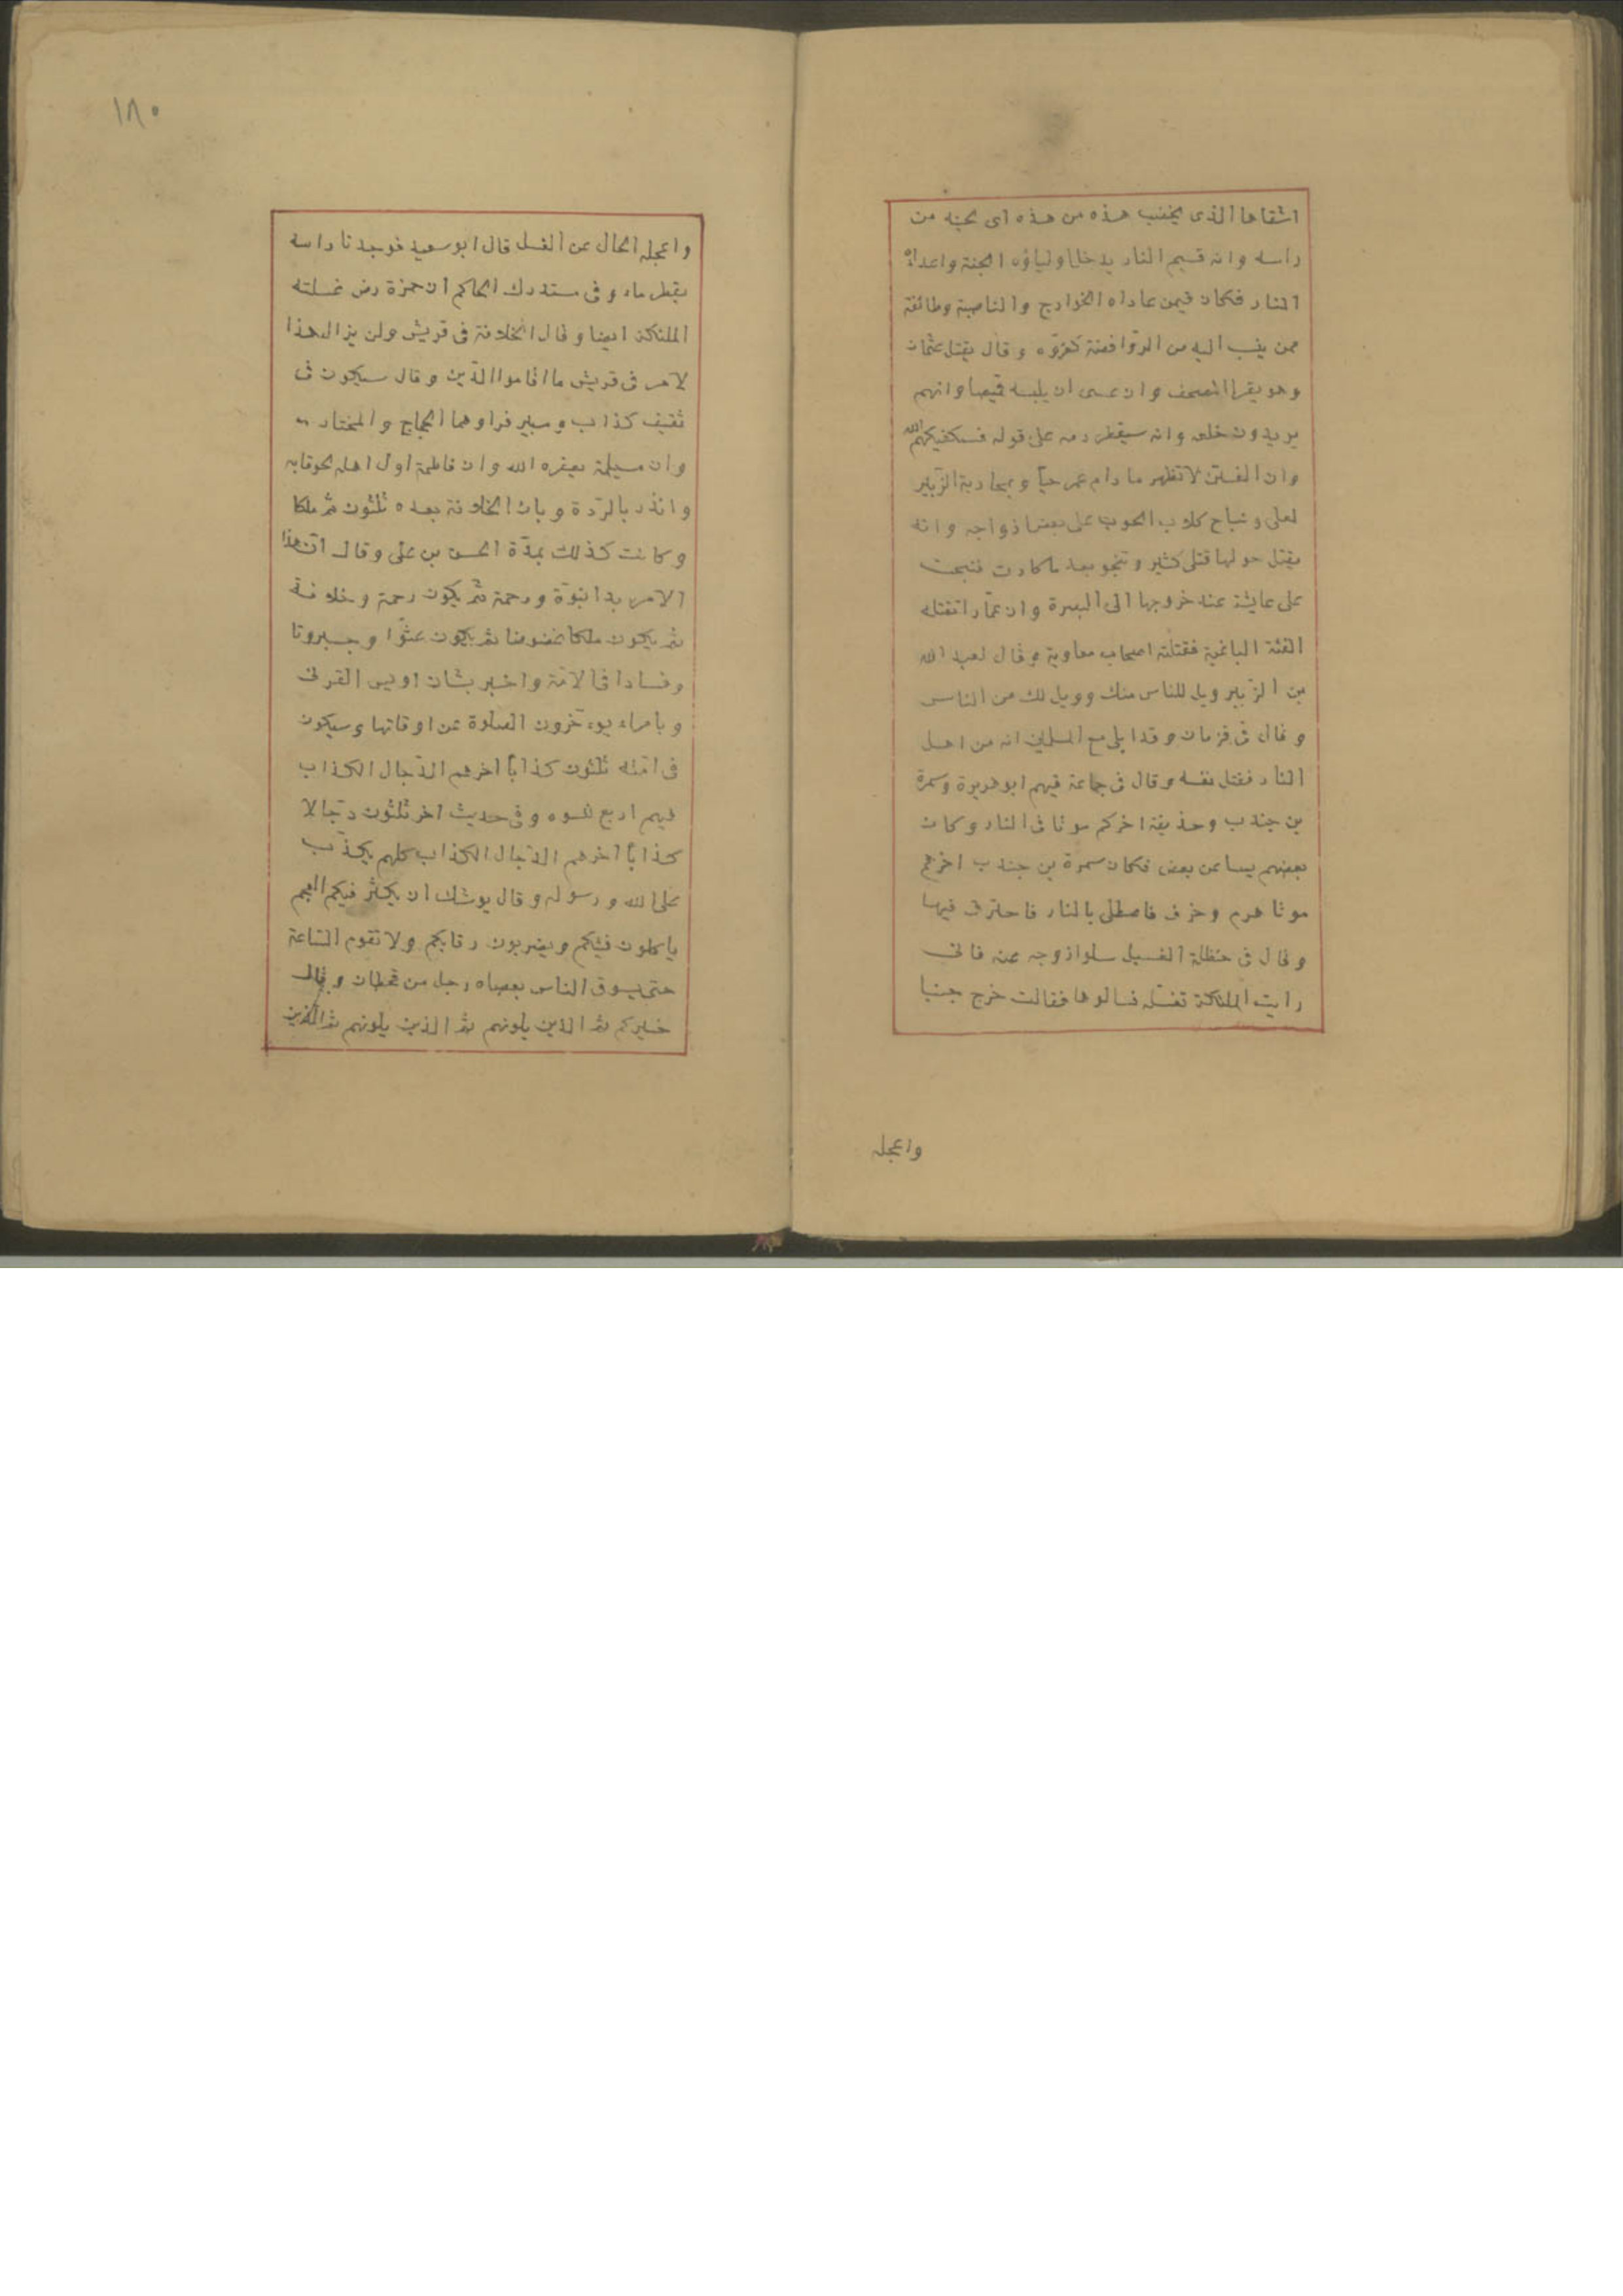 اشقاها الذى يخضب هذه من هذه اى لحيته من
راسه وانه قسيم النار يدخل اولياؤه الجنة واعداؤه
النار فكان فيمن عاداه الخوارج والناصبة وطائفة
ممن ينسب اليه من الروافضة كفروه وقال يقتل عثمان
وهو يقرا المصحف وان عسى ان يلبسه قميصا وانهم
يريدون خلعه وانه سيقطر دمه على قوله فسيكفيكهم الله
وان الفتن لا تظهر ما دام عمر حيا وبمحاربة الزبير
لعلى ونباح كلاب الحوب على بعض ازواجه وانه
يقتل حولها قتلى كثير وتنجو بعد ما كادت فنبحت
على عايشة عند خروجها الى البصرة وان عمّارا تقتله
الفئة الباغية فقتلته اصحاب معاوية وقال لعبد الله
بن الزبير ويل للناس منك وويل لك من الناس
وقال فى قزمان وقد ابلى مع المسلمين انه من اهل
النار فقتل نفسه وقال فى جماعة فيهم ابو هريرة وسمرة
بن جندب وحذيفة اخركم موتا فى النار وكان
بعضهم يسا عن بعض فكان سمرة بن جندب اخرهم
موتا هرم وخرف فاصطلى بالنار فاحترق فيها
وقال فى حنظلة الغسيل سلوا زوجه عنه فانى
رايت الملئكة تغسله فسالوها فقالت خرج جنبا
واعجله
١٨٠
واعجله الحال عن الغسل قال ابو سعيد فوجدنا راسه
يقطر ماء وفى مستدرك الحاكم ان حمزة رض غسلته
الملئكة ايضا وقال الخلافة فى قريش ولن يزال هذا
لامر فى قريش ما اقاموا الدين وقال سيكون فى
ثقيف كذاب ومبير فراوهما الحجاج والمختار
وان مسيلمة يعقره الله وان فاطمة اول اهله لحوقا به
وانذر بالردة وبان الخلافة بعده ثلثون ثم ملكا
وكانت كذلك بمدّة الحسن بن على وقال ان هذا
الامر بدا نبوّة ورحمة ثم يكون رحمة وخلافة
ثم يكون ملكا عضوضا ثم يكون عتوّا وجبروتا
وفسادا فى الامة واخبر بشان اويس القرنى
وبامراء يوءخرون الصلوة عن اوقاتها وسيكون
فى امته ثلثون كذابا اخرهم الدّجال الكذاب
فيهم اربع نسوه وفى حديث اخر ثلثون دجالا
كذابا اخرهم الدّجال الكذاب كلهم يكذّب
على الله ورسوله وقال يوشك ان يكثر فيكم العجم
ياكلون فيئكم ويضربون رقابكم ولا تقوم الساعة
حتى يسوق الناس بعصاه رجل من قحطان وقال
خيركم ثم الذين يلونهم ثم الذين يلونهم ثم الذين